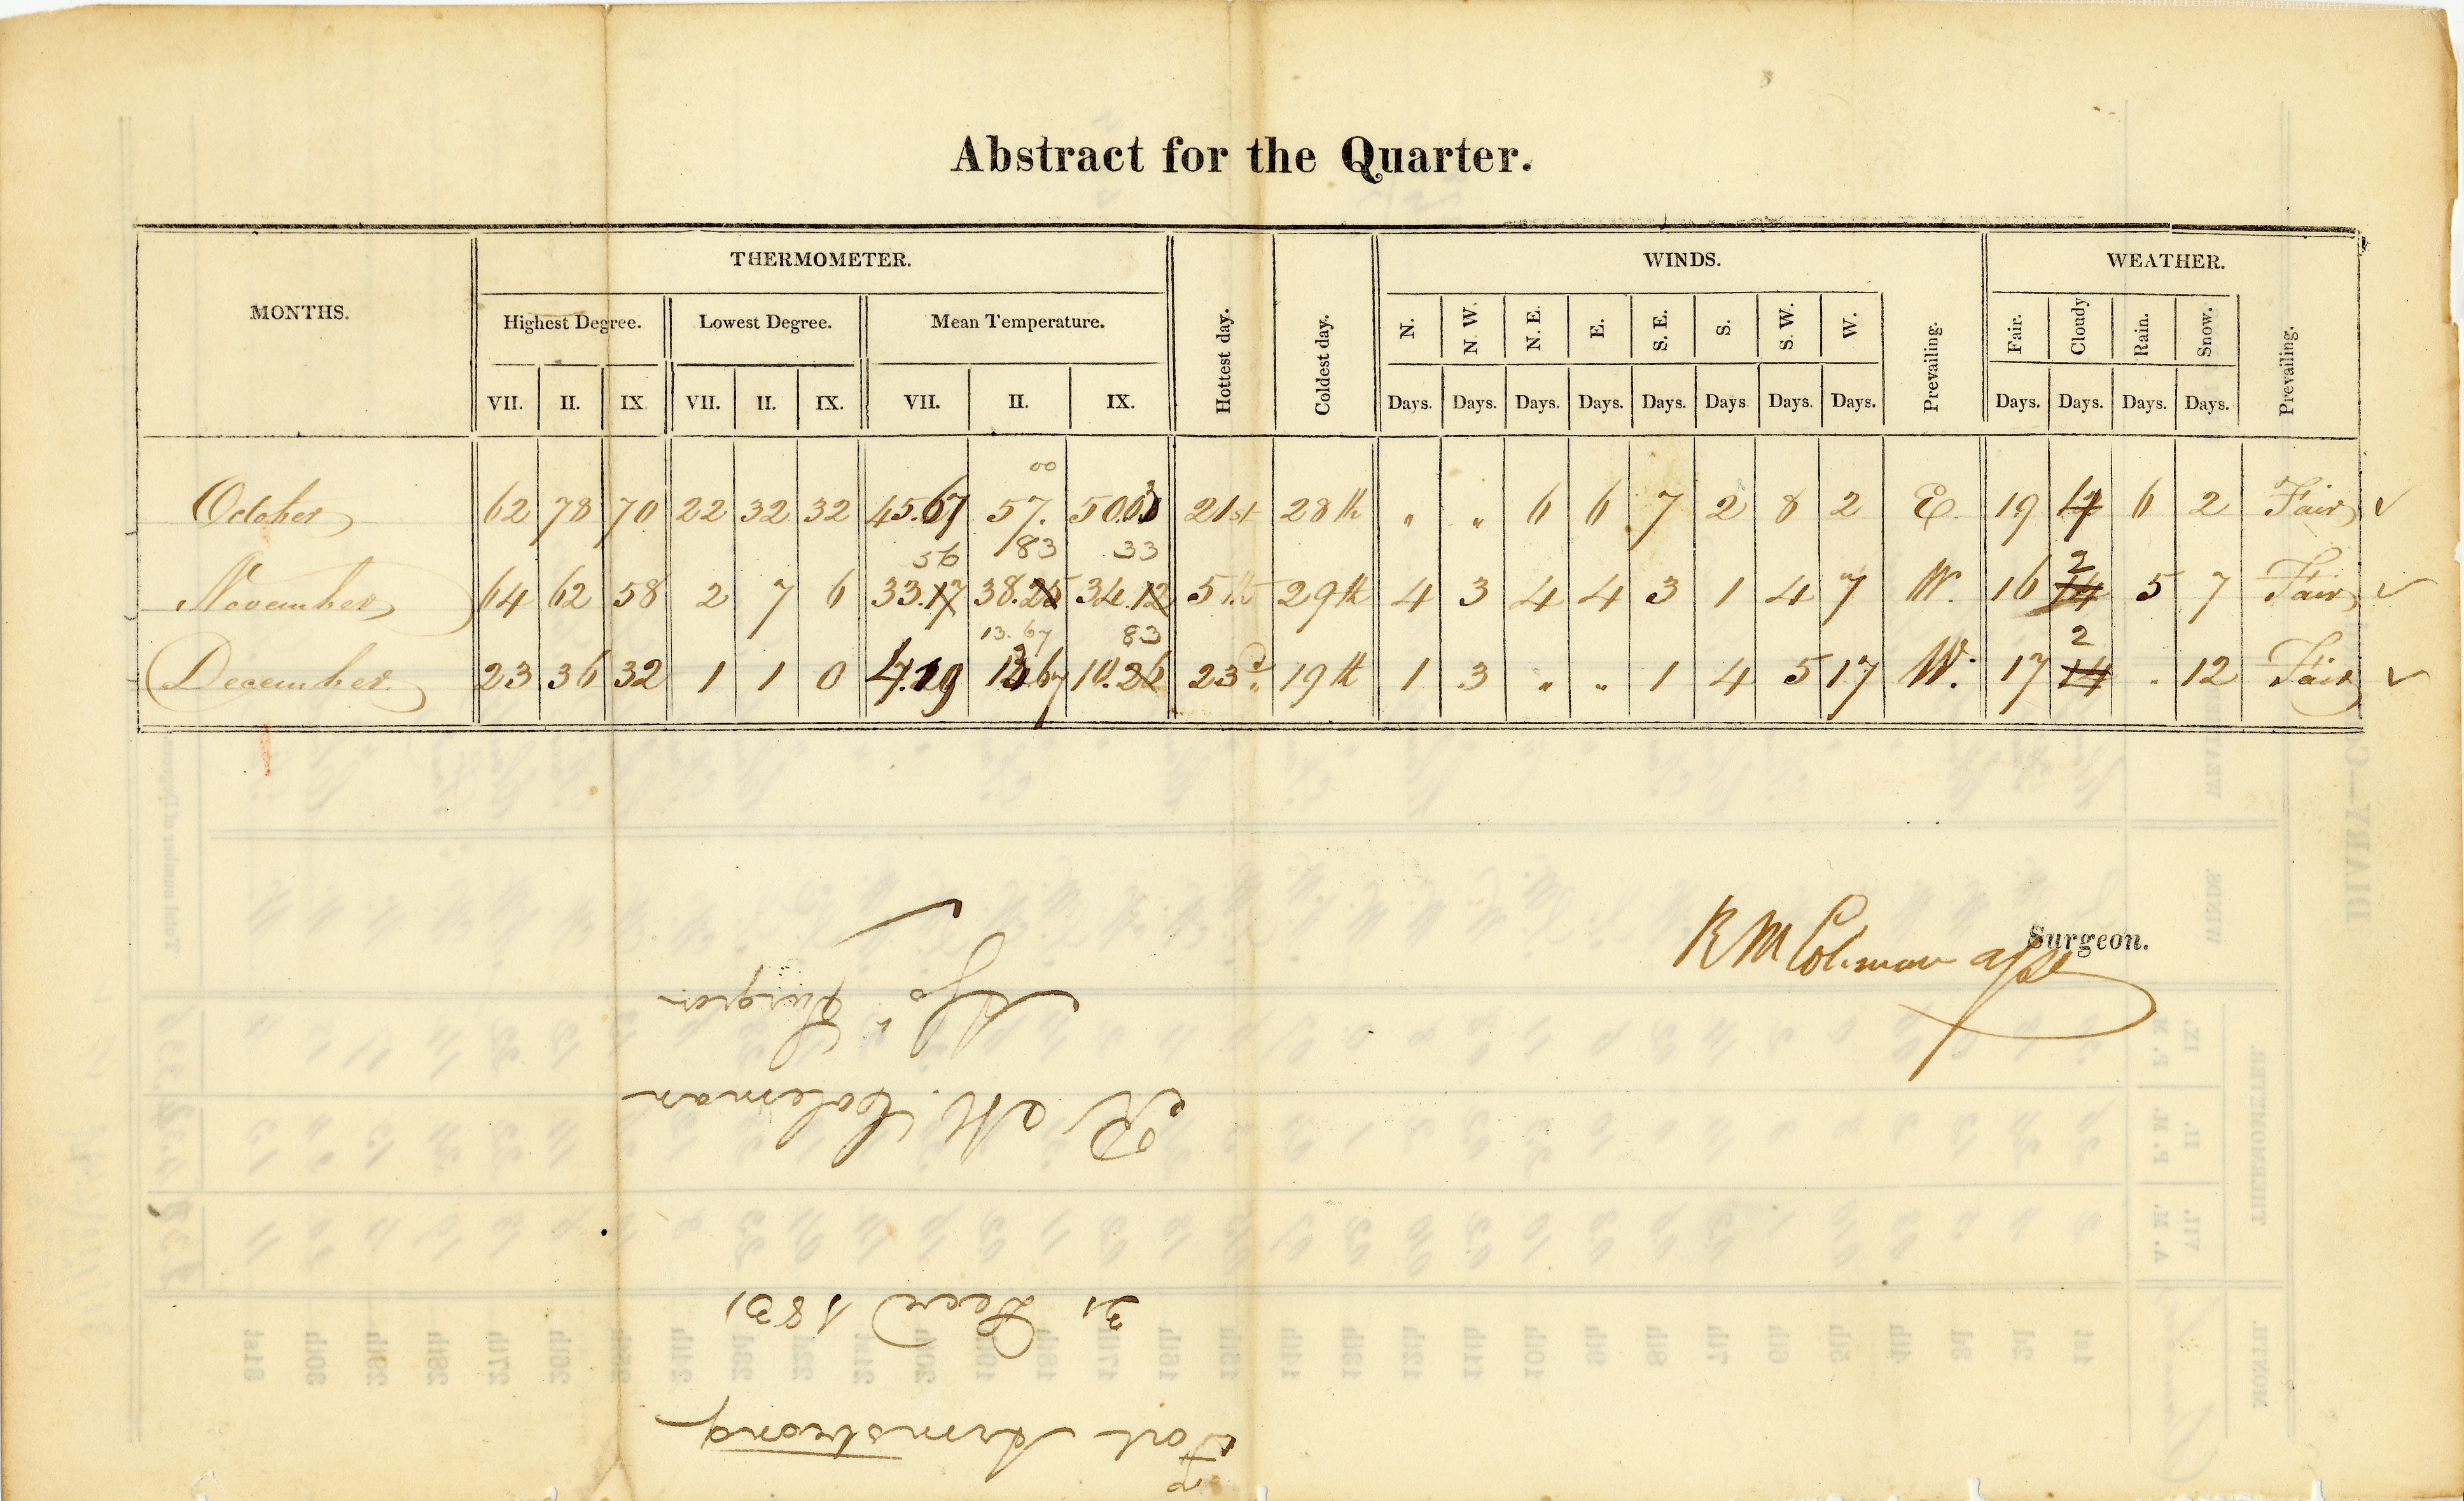 Abstract for the Quarter.
MONTHS. THERMOMETER. Hottest day. Coldest day. WINDS. WEATHER.
Highest Degree. Lowest Degree. Mean Temperature. N. N. W. N. E. E. S. E. S. S. W. W. Prevailing. Fair. Cloudy Rain. Snow. Prevailing.
VII. II. IX VII. II. IX. VII. II. IX. Days. Days. Days. Days. Days. Days Days. Days. Days. Days. Days. Days.
00
October 62 78 70 22 32 32 45.67 57. 50.03 21st 28th " " 6 6 7 2 8 2 E. 19 4 6 2 Fair ✓
56 83 33 2
November 64 62 58 2 7 6 33.17 38.25 34.12 5th 29th 4 3 4 4 3 1 4 7 W. 16 14 5 7 Fair ✓
13.67 83 2
December 23 36 32 1 1 0 4.19 13.67 10.26 23d 19th 1 3 " " 1 4 5 17 W. 17 14 . 12 Fair ✓
R M Coleman Surgeon.
Fort Armstrong
31 Decr 1831
R M. Coleman
Surgeon